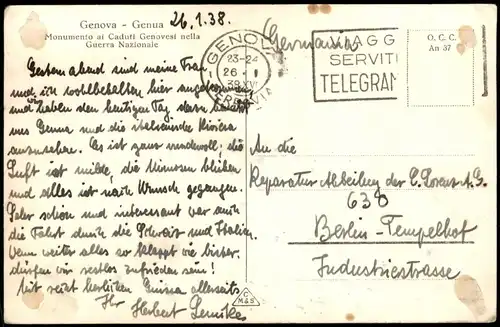 Genova - Genua
Monumento ai Caduti Genovesi nella
Guerra Nazionale
26.1.38.
Gestern abend sind meine Frau
und ich wohlbehalten hier angekommen
und haben den heutigen Tag dazu benutzt
uns Genua und die italienische Riviera
anzusehen. Es ist ganz wundervoll; die
Luft ist milde, die Mimosen blühen
und alles ist nach Wunsch gegangen.
Sehr schön und interessant war auch
die Fahrt durch die Schweiz und Italien.
Wenn weiter alles so klappt wie bisher,
dürfen wir restlos zufrieden sein!
Mit recht herzlichen Grüssen allerseits
Ihr Herbert
GENOVA
23-24
26 - I
38 XVI
FERROVIA
VIAGG
SERVITE
TELEGRAM
Germania
O. C. C.
An 37
An die
Reparatur Abteilung der C. Lorenz A.G.
638
Berlin-Tempelhof
Industriestrasse
C
M&S